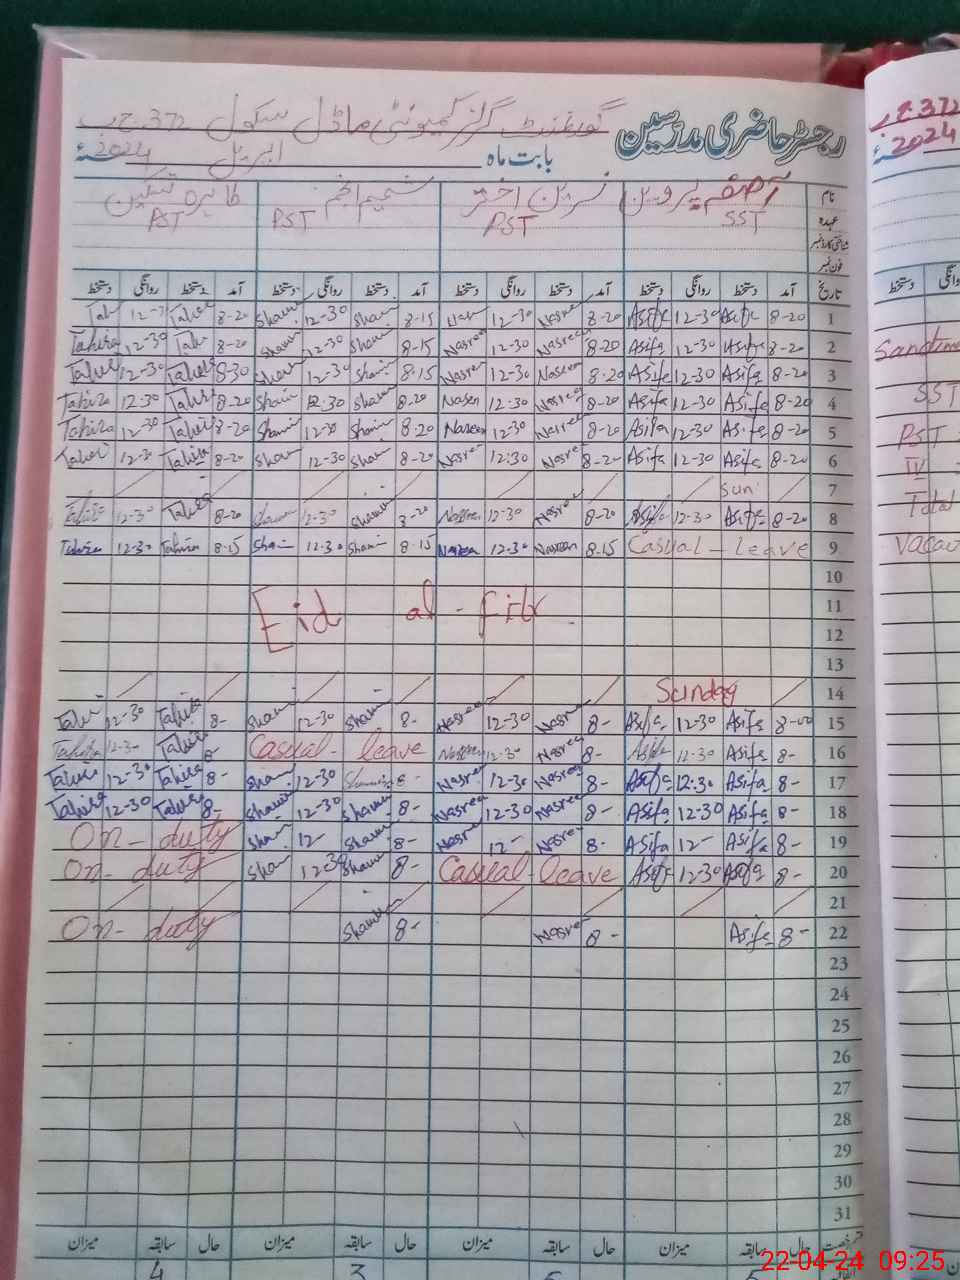 رجسٹر حاضری مدرسین گورنمنٹ گرلز کمیونٹی ماڈل سکول 372 ج ب
بابت ماہ اپریل 2024ء
نام آصفہ پروین نسرین اختر شمیم انجم طاہرہ
عہدہ SST PST PST PST
شناختی کارڈ نمبر
فون نمبر
تاریخ آمد دستخط روانگی دستخط آمد دستخط روانگی دستخط آمد دستخط روانگی دستخط آمد دستخط روانگی دستخط
Tah 12-3 Tahe 8-20 Sham 12-30 Sham 8-15 Nas 12-30 Nasre 8-20 Asife 12-30 Asife 8-20 1
Tahira 12-30 Tah 8-20 Sham 12-30 Sham 8-15 Nasree 12-30 Nasree 8-20 Asifa 12-30 Asife 8-20 2
Tahir 12-30 Tahir 8-30 Sham 12-30 Sham 8-15 Nasren 12-30 Nasreen 8-20 Asife 12-30 Asifa 8-20 3
Tahira 12-30 Tahir 8-20 Sham 12-30 Sham 8-20 Nasen 12-30 Nasree 8-20 Asifa 12-30 Asife 8-20 4
Tahira 12-30 Tahir 8-20 Shamin 12-30 Sham 8-20 Nasreen 12-30 Nasree 8-20 Asifa 12-30 Asife 8-20 5
Taher 12-30 Tahira 8-20 Sham 12-30 Sham 8-20 Nasre 12:30 Nasree 8-20 Asifa 12-30 Asifa 8-20 6
Sun 7
Tahira 12-30 Tahira 8-20 Shamin 12-30 Shamin 8-20 Nasreen 12-30 Nasree 8-20 Asifa 12-30 Asife 8-20 8
Tahira 12-30 Tahira 8-15 Sham 12-30 Sham 8-15 Nasreen 12-30 Nasreen 8-15 Casual - leave 9
10
Eid al - Fitr 11
12
13
Sunday 14
Tahi 12-30 Tahira 8- Sham 12-30 Sham 8- Nasree 12-30 Nasree 8- Asifa 12-30 Asifa 8-00 15
Tahira 12-30 Tahira 8- Casual - leave Nasreen 12-30 Nasree 8- Asife 12-30 Asifa 8- 16
Tahira 12-30 Tahira 8- Sham 12-30 Shamim 8- Nasree 12-30 Nasree 8- Asifa 12-30 Asifa 8- 17
Tahira 12-30 Tahira 8- Shamin 12-30 Sham 8- Nasree 12-30 Nasree 8- Asifa 12-30 Asifa 8- 18
On - duty Sham 12- Sham 8- Nasree 12- Nasree 8- Asifa 12- Asifa 8- 19
On - duty Sham 12-30 Sham 8- Casual - leave Asifa 12-30 Asifa 8- 20
21
On - duty Shamin 8- Nasree 8- Asifa 8- 22
23
24
25
26
27
28
29
30
31
حال سابقہ میزان حال سابقہ میزان حال سابقہ میزان حال سابقہ میزان
4 3
372 ج ب
2024
دستخط
SST
PST
IV
Total
22-04-24 09:25